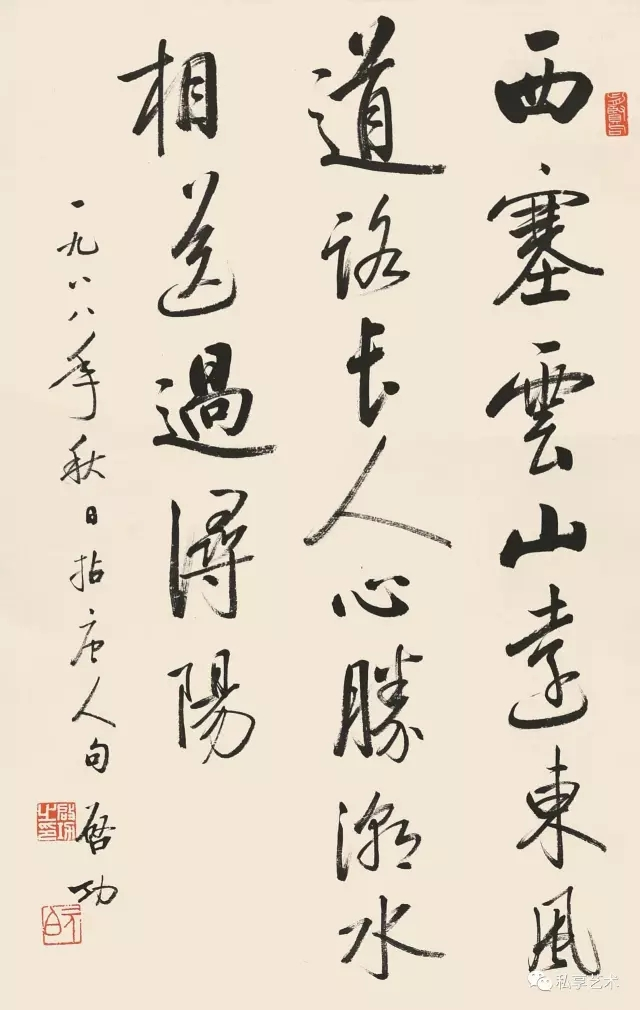 西塞雲山遠東風
道路長人心勝潮水
相送過潯陽
一九八八年秋日拈唐人句
啓功
啓功之印
元白
私享艺术